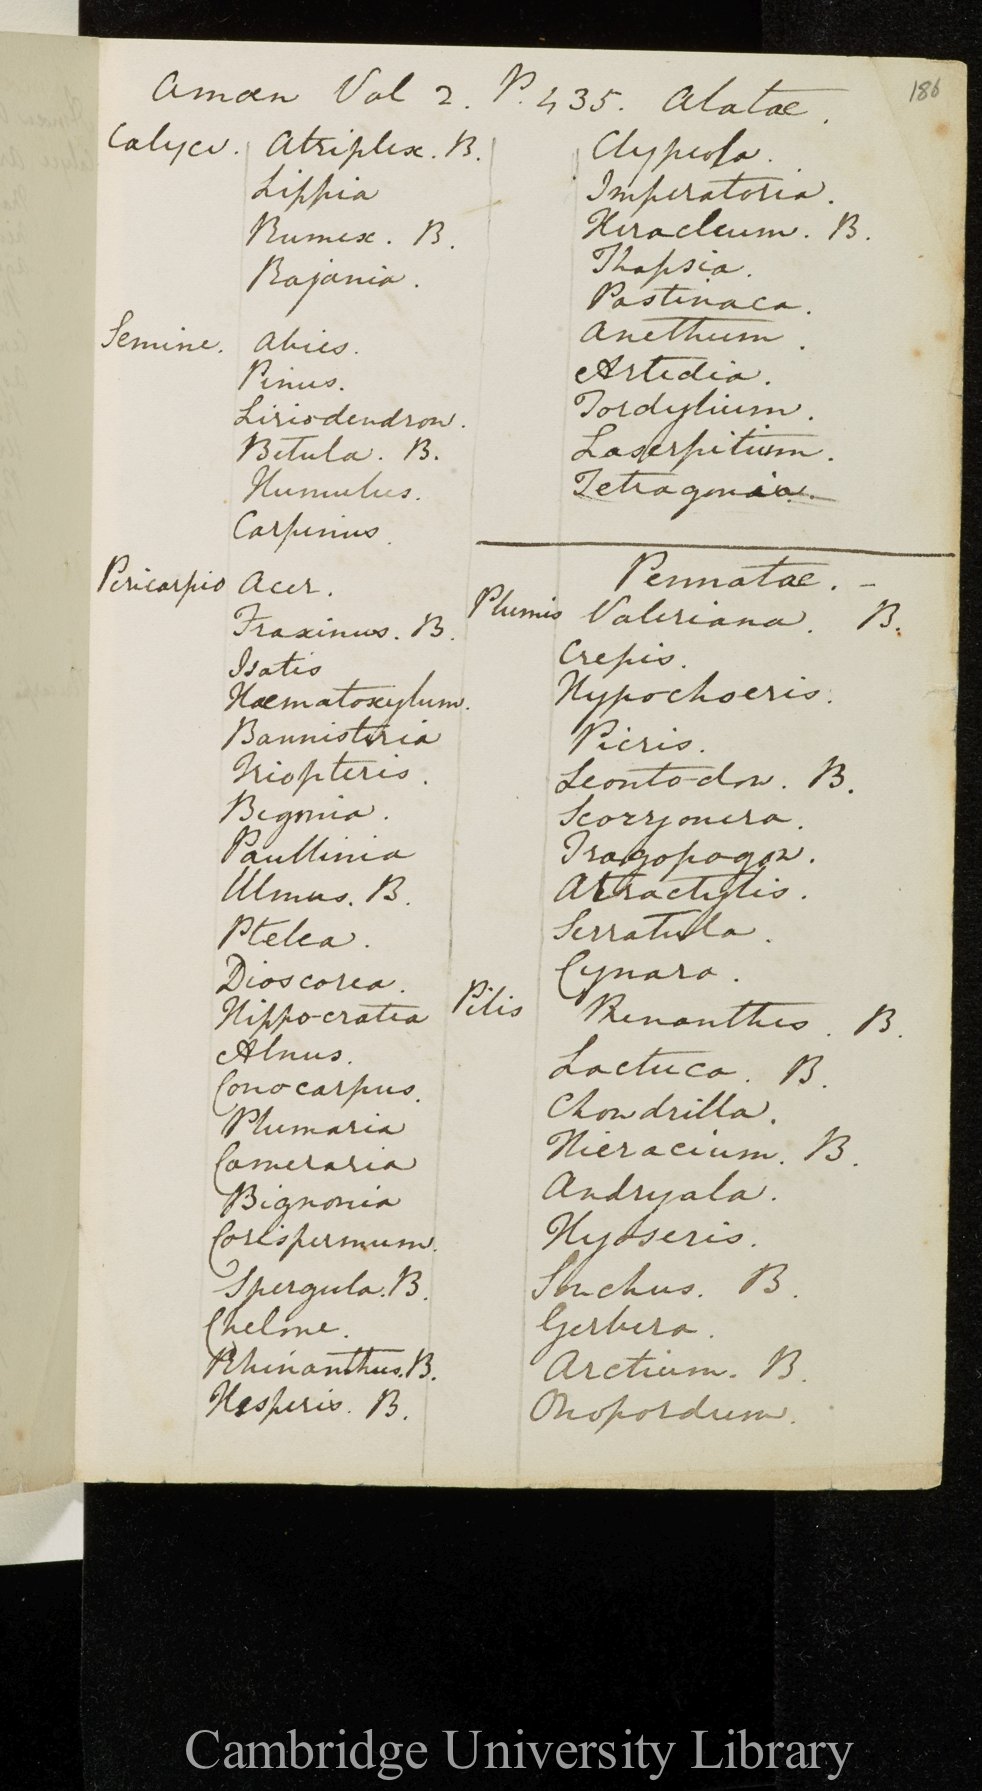 186
Amœn Vol 2. P. 435. Alatae.
Calyce. Atriplex. B.
Lippia
Rumex. B.
Rajania.
Semine. Abies.
Pinus.
Liriodendron.
Betula. B.
Humulus.
Carpinus.
Pericarpio Acer.
Fraxinus. B.
Isatis
Hæmatoxylum.
Bannisteria
Triopteris.
Begonia.
Paullinia
Ulmus. B.
Ptelea.
Dioscorea.
Hippocratea
Alnus.
Conocarpus.
Plumaria
Cameraria
Bignonia
Corispermum.
Spergula. B.
Chelone.
Rhinanthus. B.
Hesperis. B.
Clypeola.
Imperatoria.
Heracleum. B.
Thapsia.
Pastinaca.
Anethum.
Artedia.
Tordylium.
Laserpitium.
Tetragonia.
Pennatae. –
Plumis Valeriana. B.
Crepis.
Hypochoeris.
Picris.
Leontodon. B.
Scorzonera.
Tragopogon.
Atractylis.
Serratula.
Cynara.
Pilis Prenanthes. B.
Lactuca. B.
Chondrilla.
Hieracium. B.
Andryala.
Hyoseris.
Sonchus. B.
Gerbera.
Arctium. B.
Onopordum.
Cambridge University Library